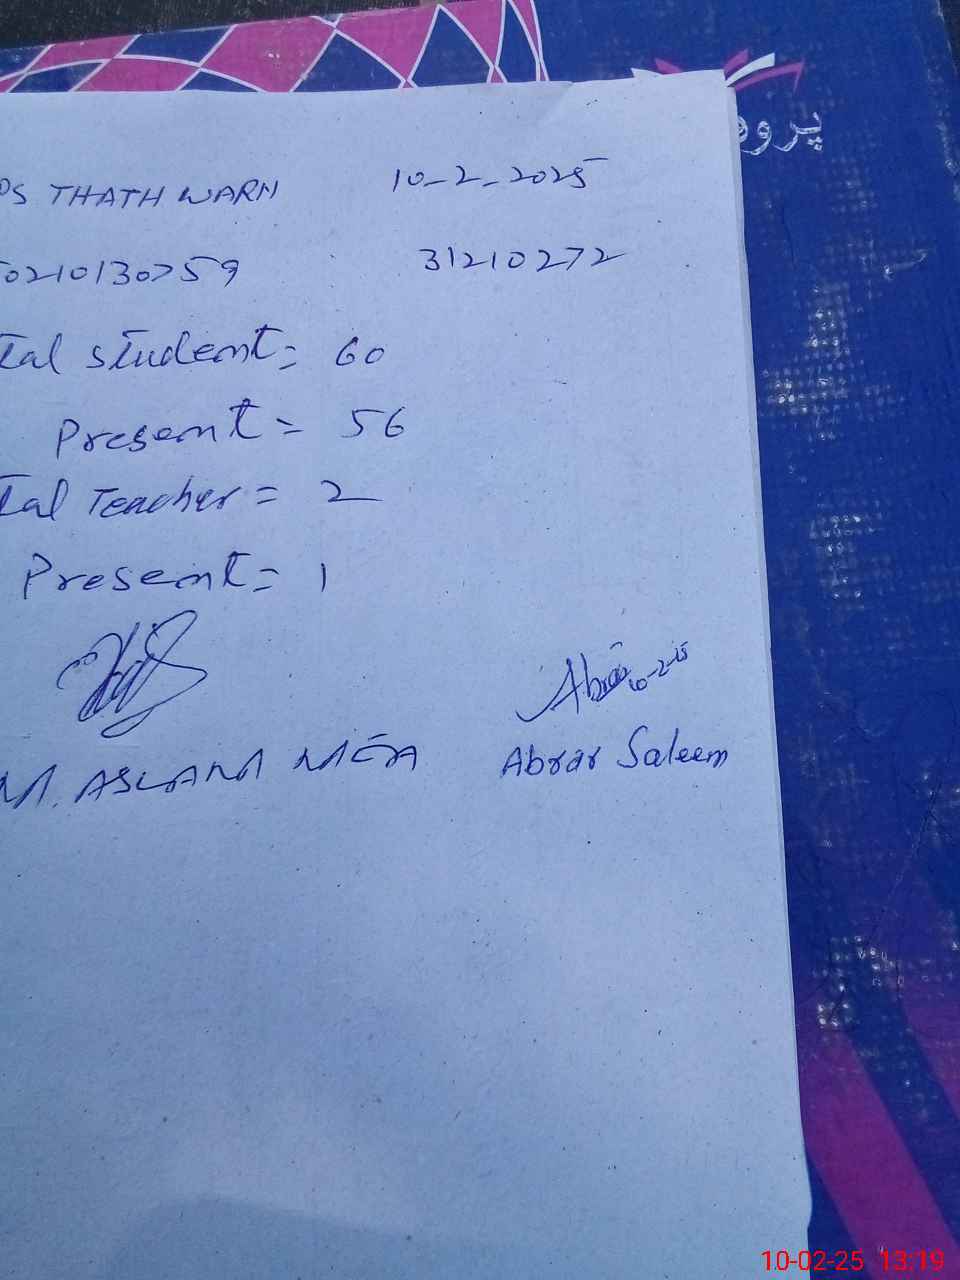 PS THATH WARN 10-2-2025
50210130759 31210272
Tal student = 60
Present = 56
Tal Teacher = 2
Present = 1
Abrar 10-2-25
M. ASLAM Abrar Saleem
پرو
10-02-25 13:19